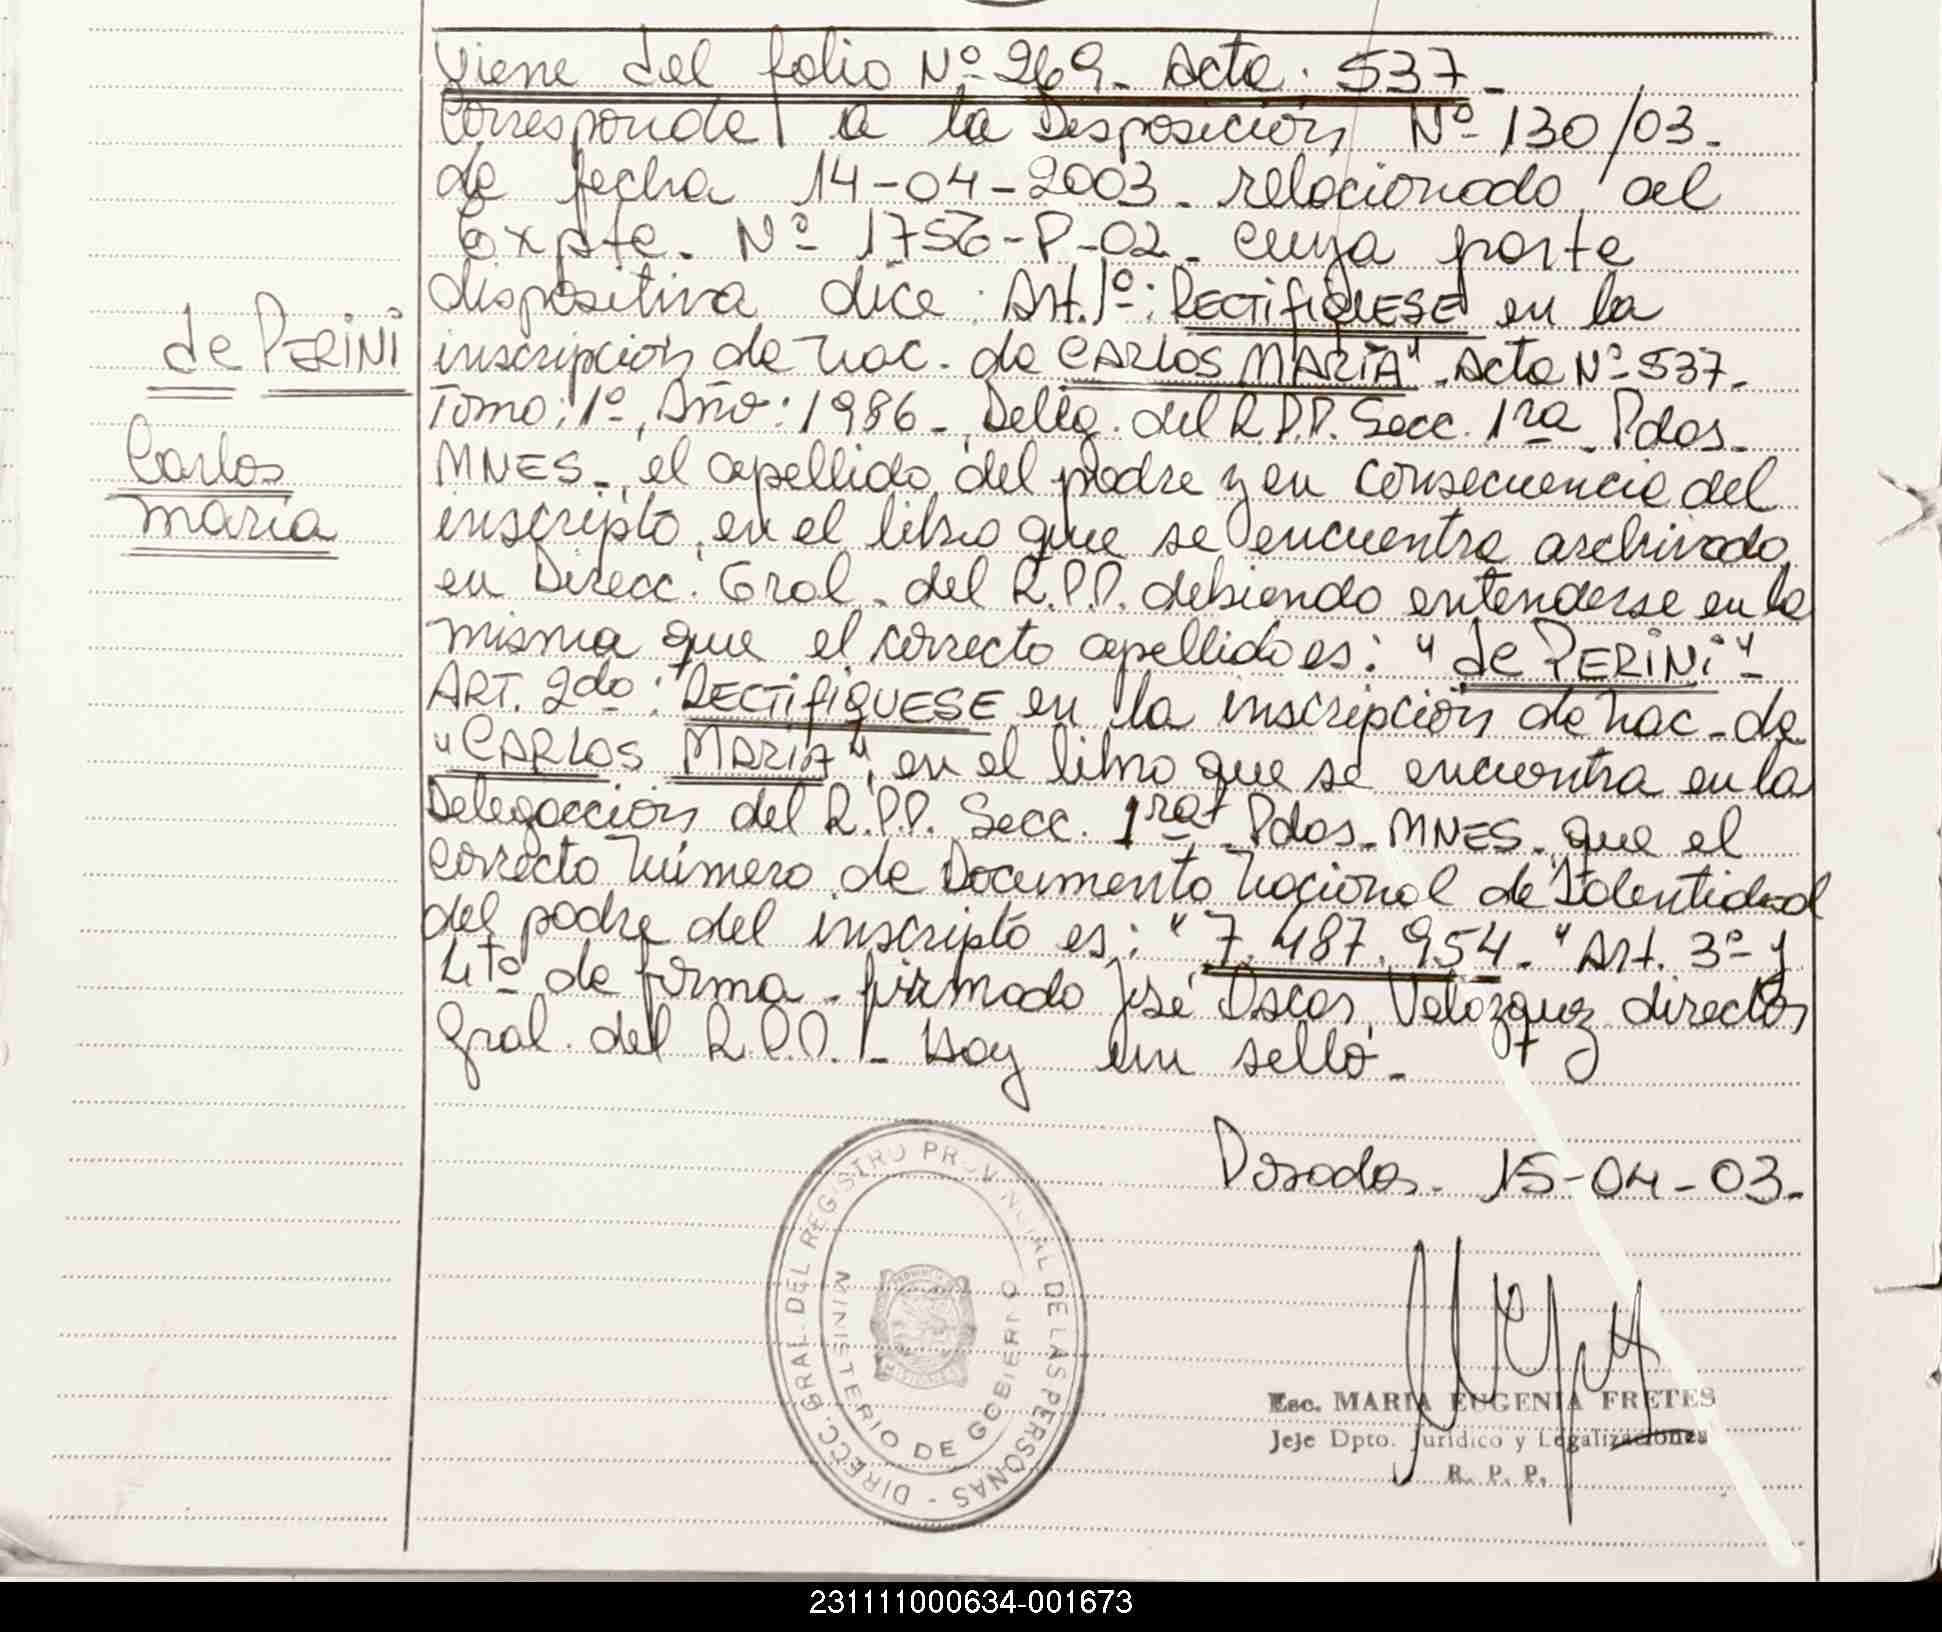 Viene del folio Nº 269. Acta. 537-
Corresponde a la Disposición Nº 130/03.
de fecha 14-04-2003. relacionado al
Expte. Nº 1756-P-02. cuya parte
dispositiva dice: Art. 1º: RECTIFIQUESE en la
inscripción de nac. de CARLOS MARIA". Acta Nº 537.
Tomo: 1º, Año: 1986-, Deleg. del R.P.P. Secc. 1ra Pdas-
MNES-, el apellido del padre y en consecuencia del
inscripto, en el libro que se encuentra archivado
en Direcc. Gral. del R.P.P. debiendo entenderse en la
misma que el correcto apellido es: "de PERINI"-
ART. 2do: RECTIFIQUESE en la inscripción de nac. de
"CARLOS MARIA", en el libro que se encuentra en la
Delegacción del R.P.P. Secc. 1ra Pdas. MNES. que el
correcto número de Documento Nacional de Identidad
del padre del inscripto es: "7.487.954." Art. 3º y
4tº de forma. firmado José Oscar Velozquez director
Gral. del R.P.P. - Hay un sello.-
de PERINI
Carlos
maría
Posadas. 15-04-03.-
DIRECC. GRAL. DEL REGISTRO PROVINCIAL DE LAS PERSONAS -
MINISTERIO DE GOBIERNO
PROVINCIA DE
MISIONES
Esc. MARIA EUGENIA FRETES
Jefe Dpto. Jurídico y Legalizaciones
R. P. P.
231111000634-001673